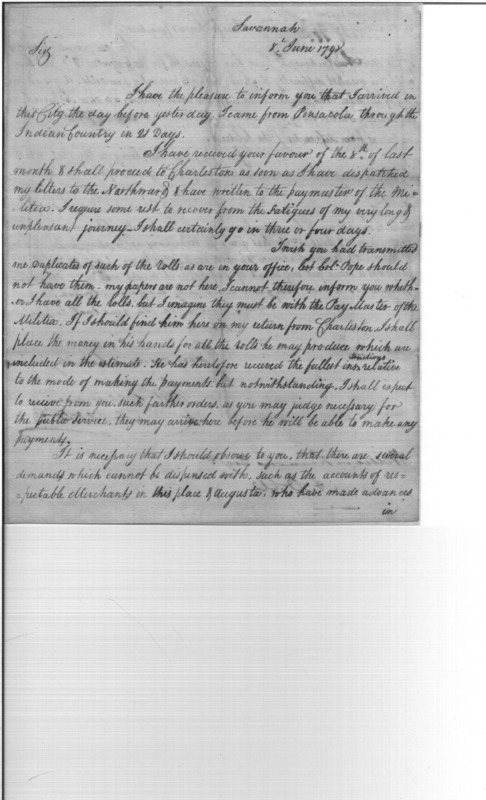 Savannah
8th June 1798
Sir,
I have the pleasure to inform you that I arrived in
this City the day before yesterday, I came from Pensacola through the
Indian Country in 21 Days.
I have received your favour of the 8th of last
month & shall proceed to Charleston as soon as I have dispatched
my letters to the Northward, & have written to the paymaster of the Mi=
litia. I require some rest to recover from the fatigues of my very long &
unpleasant journey - I shall certainly go in three or four days.
I wish you had transmitted
me duplicates of such of the rolls as are in your office, lest Col. Pope should
not have them - my papers are not here, I cannot therefore inform you wheth-
er I have all the rolls, but I imagine they must be with the Pay Master of the
Militia. If I should find him here on my return from Charleston, I shall
place the money in his hands for all the rolls he may produce which are
included in the estimate. He has heretofore received the fullest instructions relative
to the mode of making the payments, but notwithstanding, I shall expect
to receive from you, such farther orders, as you may judge necessary for
the public service, they may arrive here before he will be able to make any
payments.
It is necessary that I should observe to you, that there are several
demands which cannot be dispensed with, such as the accounts of res=
=pectable Merchants in this place & Augusta, who have made advances
in